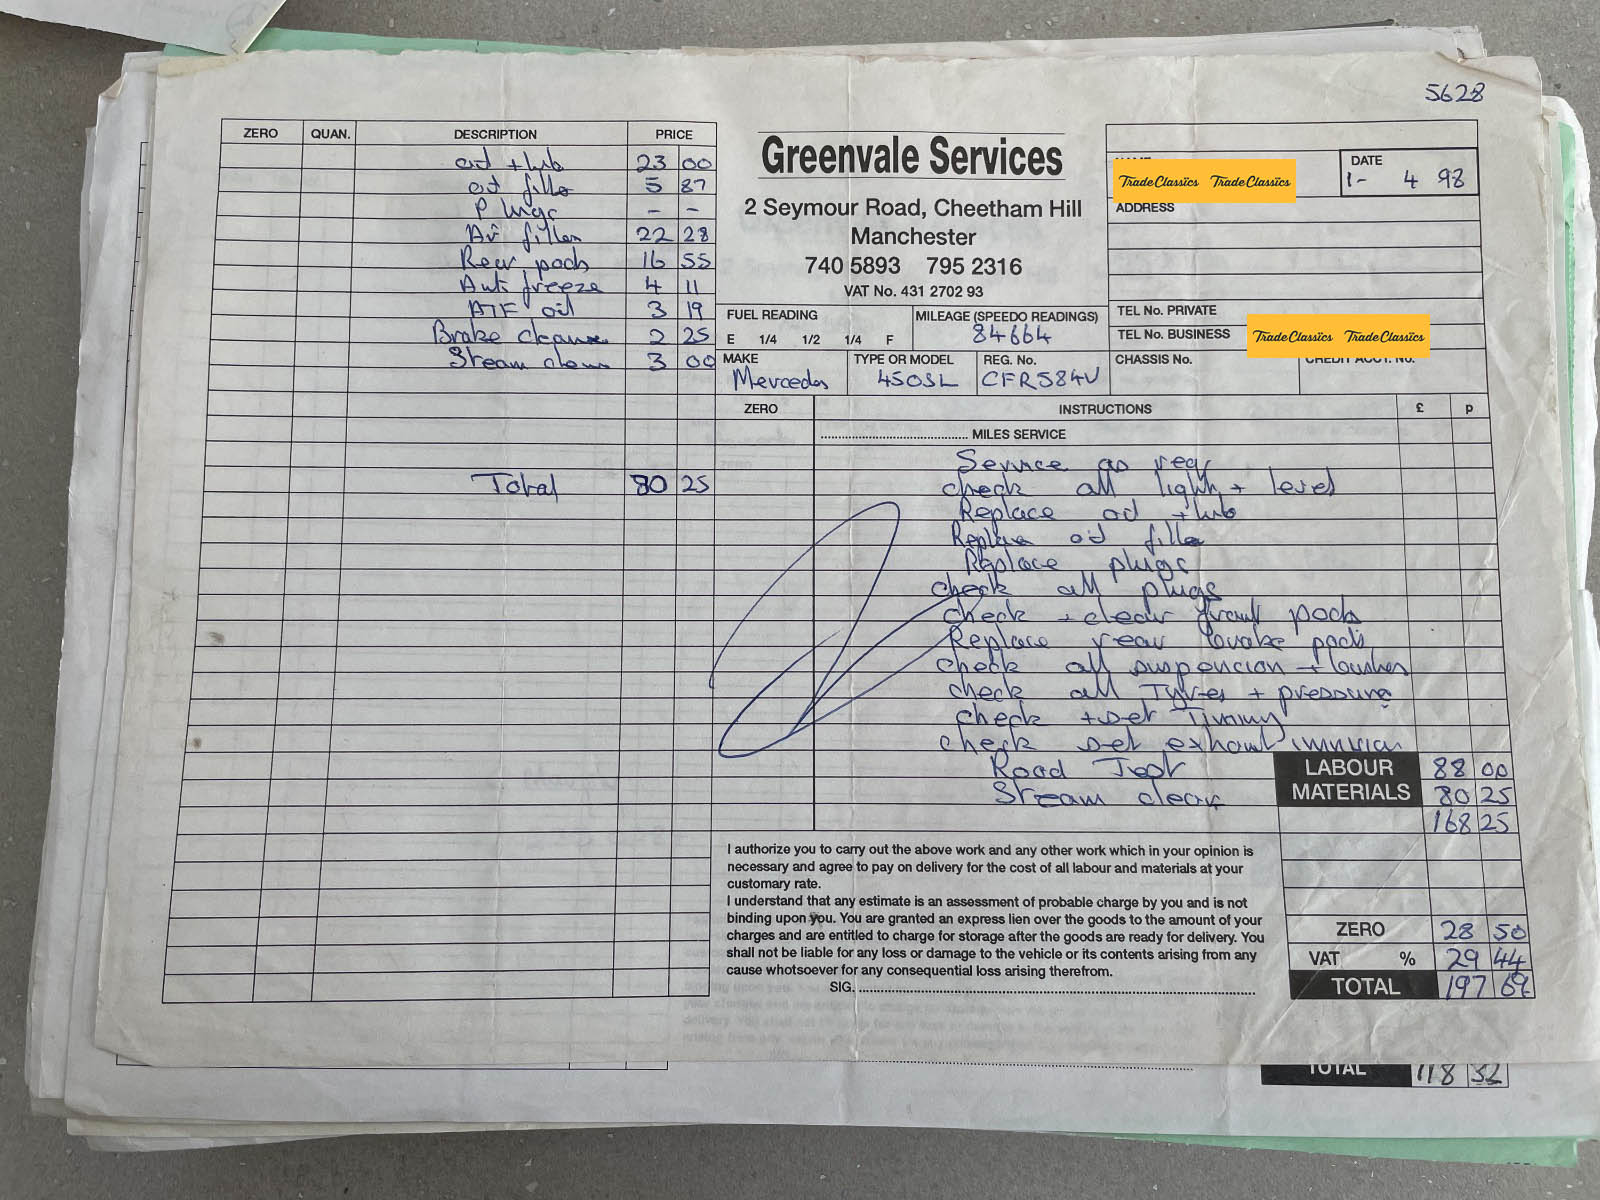 5628
ZERO QUAN. DESCRIPTION PRICE
oil + lub 23 00
oil filter 5 87
Plugs - -
Air filter 22 28
Rear pads 16 55
Anti freeze 4 11
ATF oil 3 19
Brake cleaner 2 25
Stream clean 3 00
Total 80 25
Greenvale Services
2 Seymour Road, Cheetham Hill
Manchester
740 5893 795 2316
VAT No. 431 2702 93
TradeClassics TradeClassics
DATE
1- 4 98
ADDRESS
TEL No. PRIVATE
TEL No. BUSINESS
TradeClassics TradeClassics
CHASSIS No.
CREDIT ACCT. No.
FUEL READING
E 1/4 1/2 1/4 F
MILEAGE (SPEEDO READINGS)
84664
MAKE
Mercedes
TYPE OR MODEL
450SL
REG. No.
CFR584V
ZERO INSTRUCTIONS £ p
MILES SERVICE
Service as req
check all light + level
Replace oil + lub
Replace oil filter
Replace plugs
check all plugs
check + clear front pads
Replace rear brake pads
check all suspencion + bushes
check all Tyres + pressure
check + set Timing
check set exhaust
Road Test
Stream clean
LABOUR 88 00
MATERIALS 80 25
168 25
ZERO 28 50
VAT % 29 44
TOTAL 197 69
I authorize you to carry out the above work and any other work which in your opinion is
necessary and agree to pay on delivery for the cost of all labour and materials at your
customary rate.
I understand that any estimate is an assessment of probable charge by you and is not
binding upon you. You are granted an express lien over the goods to the amount of your
charges and are entitled to charge for storage after the goods are ready for delivery. You
shall not be liable for any loss or damage to the vehicle or its contents arising from any
cause whotsoever for any consequential loss arising therefrom.
SIG.
TOTAL 118 32